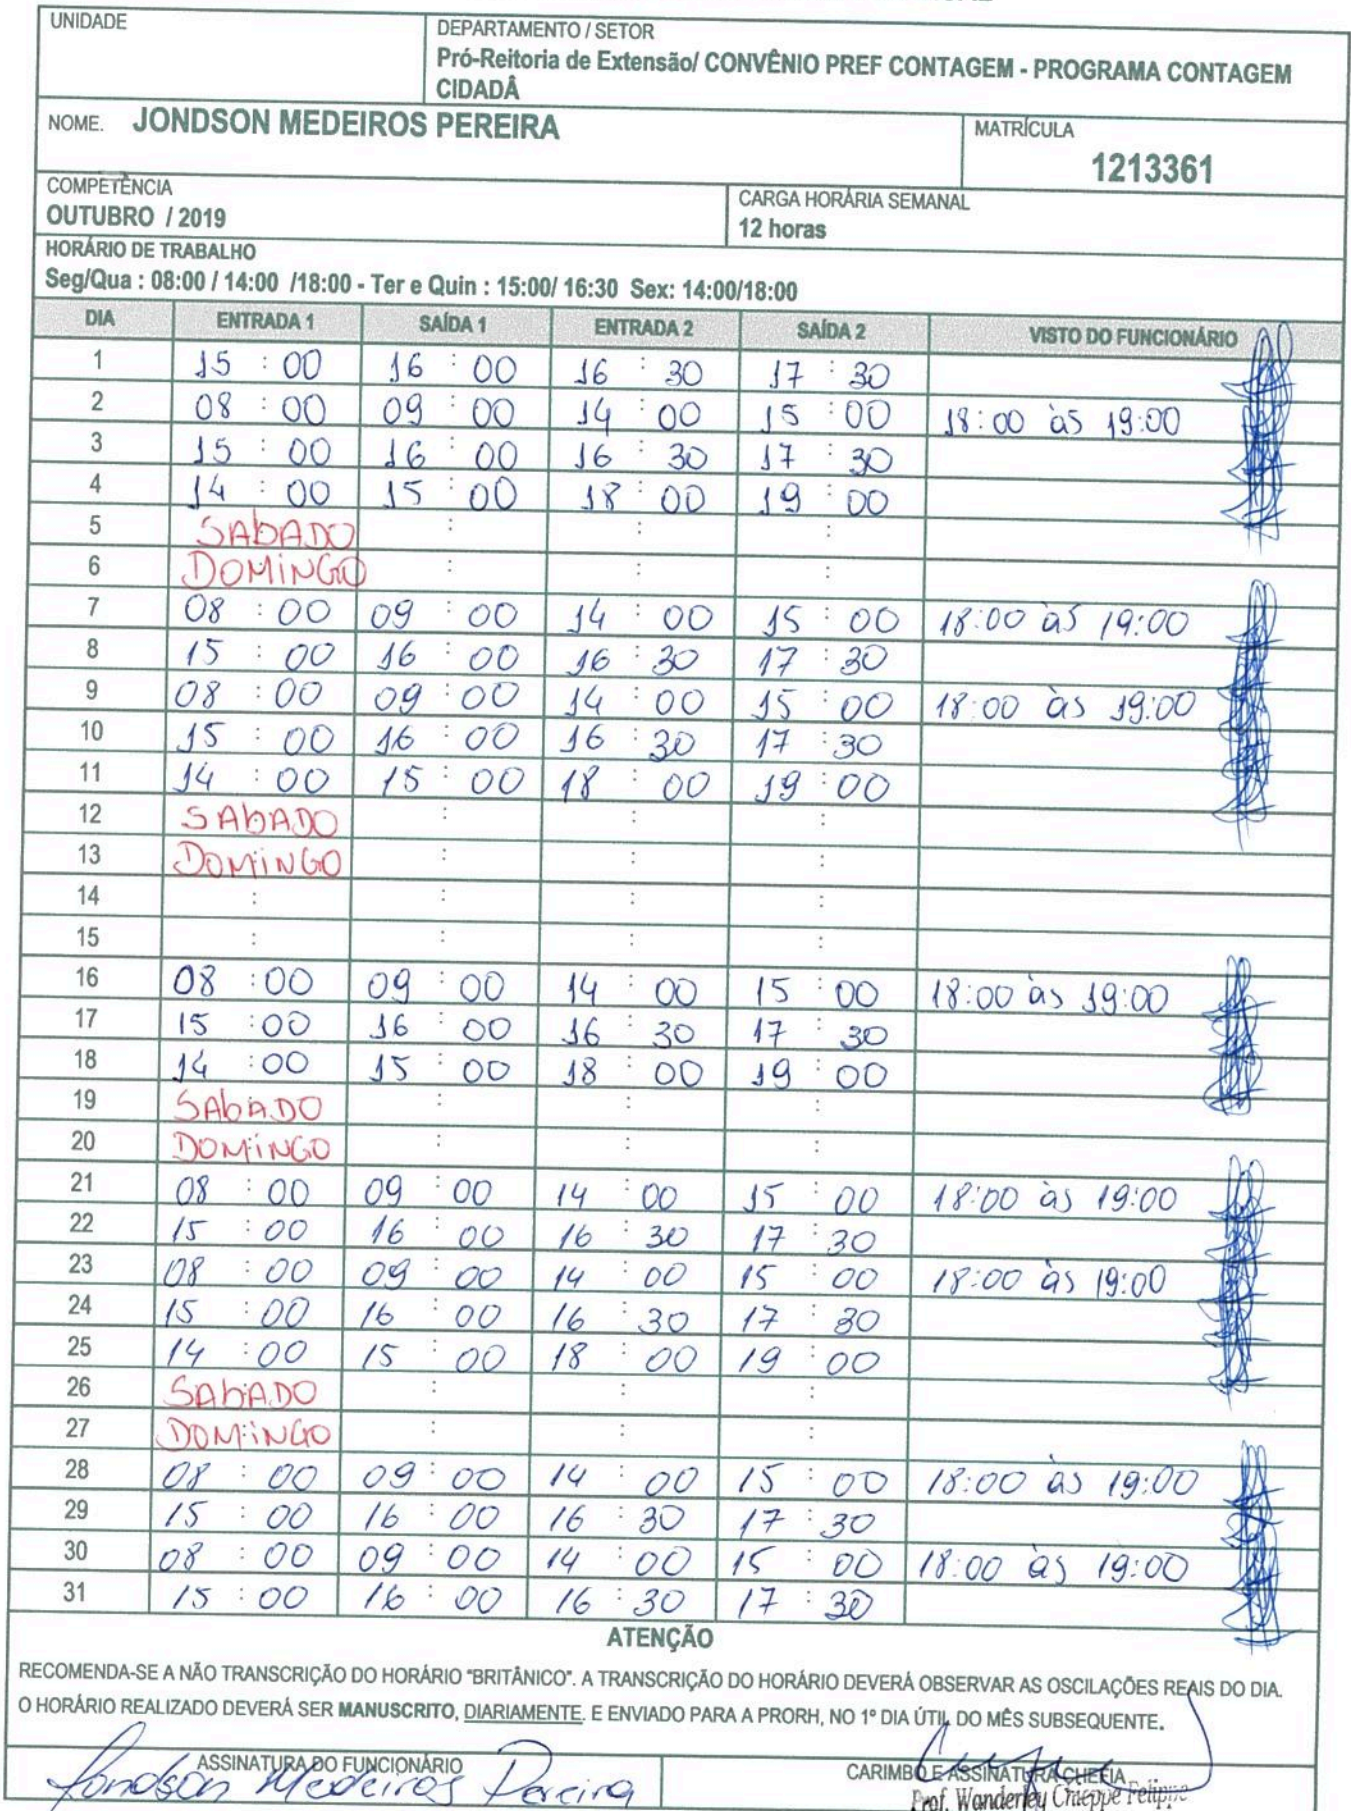 UNIDADE
DEPARTAMENTO / SETOR
Pró-Reitoria de Extensão/ CONVÊNIO PREF CONTAGEM - PROGRAMA CONTAGEM
CIDADÂ
NOME. JONDSON MEDEIROS PEREIRA
MATRÍCULA
1213361
COMPETÊNCIA
OUTUBRO / 2019
CARGA HORÁRIA SEMANAL
12 horas
HORÁRIO DE TRABALHO
Seg/Qua : 08:00 / 14:00 /18:00 - Ter e Quin : 15:00/ 16:30 Sex: 14:00/18:00
DIA ENTRADA 1 SAÍDA 1 ENTRADA 2 SAÍDA 2 VISTO DO FUNCIONÁRIO
1 15 : 00 16 : 00 16 : 30 17 : 30
2 08 : 00 09 : 00 14 : 00 15 : 00 18:00 às 19:00
3 15 : 00 16 : 00 16 : 30 17 : 30
4 14 : 00 15 : 00 18 : 00 19 : 00
5 SAbADO : : :
6 DOMiNGO : : :
7 08 : 00 09 : 00 14 : 00 15 : 00 18:00 às 19:00
8 15 : 00 16 : 00 16 : 30 17 : 30
9 08 : 00 09 : 00 14 : 00 15 : 00 18:00 às 19:00
10 15 : 00 16 : 00 16 : 30 17 : 30
11 14 : 00 15 : 00 18 : 00 19 : 00
12 SAbADO : : :
13 DOMiNGO : : :
14 : : : :
15 : : : :
16 08 : 00 09 : 00 14 : 00 15 : 00 18:00 às 19:00
17 15 : 00 16 : 00 16 : 30 17 : 30
18 14 : 00 15 : 00 18 : 00 19 : 00
19 SAbADO : : :
20 DOMiNGO : : :
21 08 : 00 09 : 00 14 : 00 15 : 00 18:00 às 19:00
22 15 : 00 16 : 00 16 : 30 17 : 30
23 08 : 00 09 : 00 14 : 00 15 : 00 18:00 às 19:00
24 15 : 00 16 : 00 16 : 30 17 : 30
25 14 : 00 15 : 00 18 : 00 19 : 00
26 SAbADO : : :
27 DOMiNGO : : :
28 08 : 00 09 : 00 14 : 00 15 : 00 18:00 às 19:00
29 15 : 00 16 : 00 16 : 30 17 : 30
30 08 : 00 09 : 00 14 : 00 15 : 00 18:00 às 19:00
31 15 : 00 16 : 00 16 : 30 17 : 30
ATENÇÃO
RECOMENDA-SE A NÃO TRANSCRIÇÃO DO HORÁRIO "BRITÂNICO". A TRANSCRIÇÃO DO HORÁRIO DEVERÁ OBSERVAR AS OSCILAÇÕES REAIS DO DIA.
O HORÁRIO REALIZADO DEVERÁ SER MANUSCRITO, DIARIAMENTE. E ENVIADO PARA A PRORH, NO 1º DIA ÚTIL DO MÊS SUBSEQUENTE.
ASSINATURA DO FUNCIONÁRIO
Jondson Medeiros Pereira
CARIMBO E ASSINATURA CHEFIA
Prof. Wanderley Chieppe Felippe